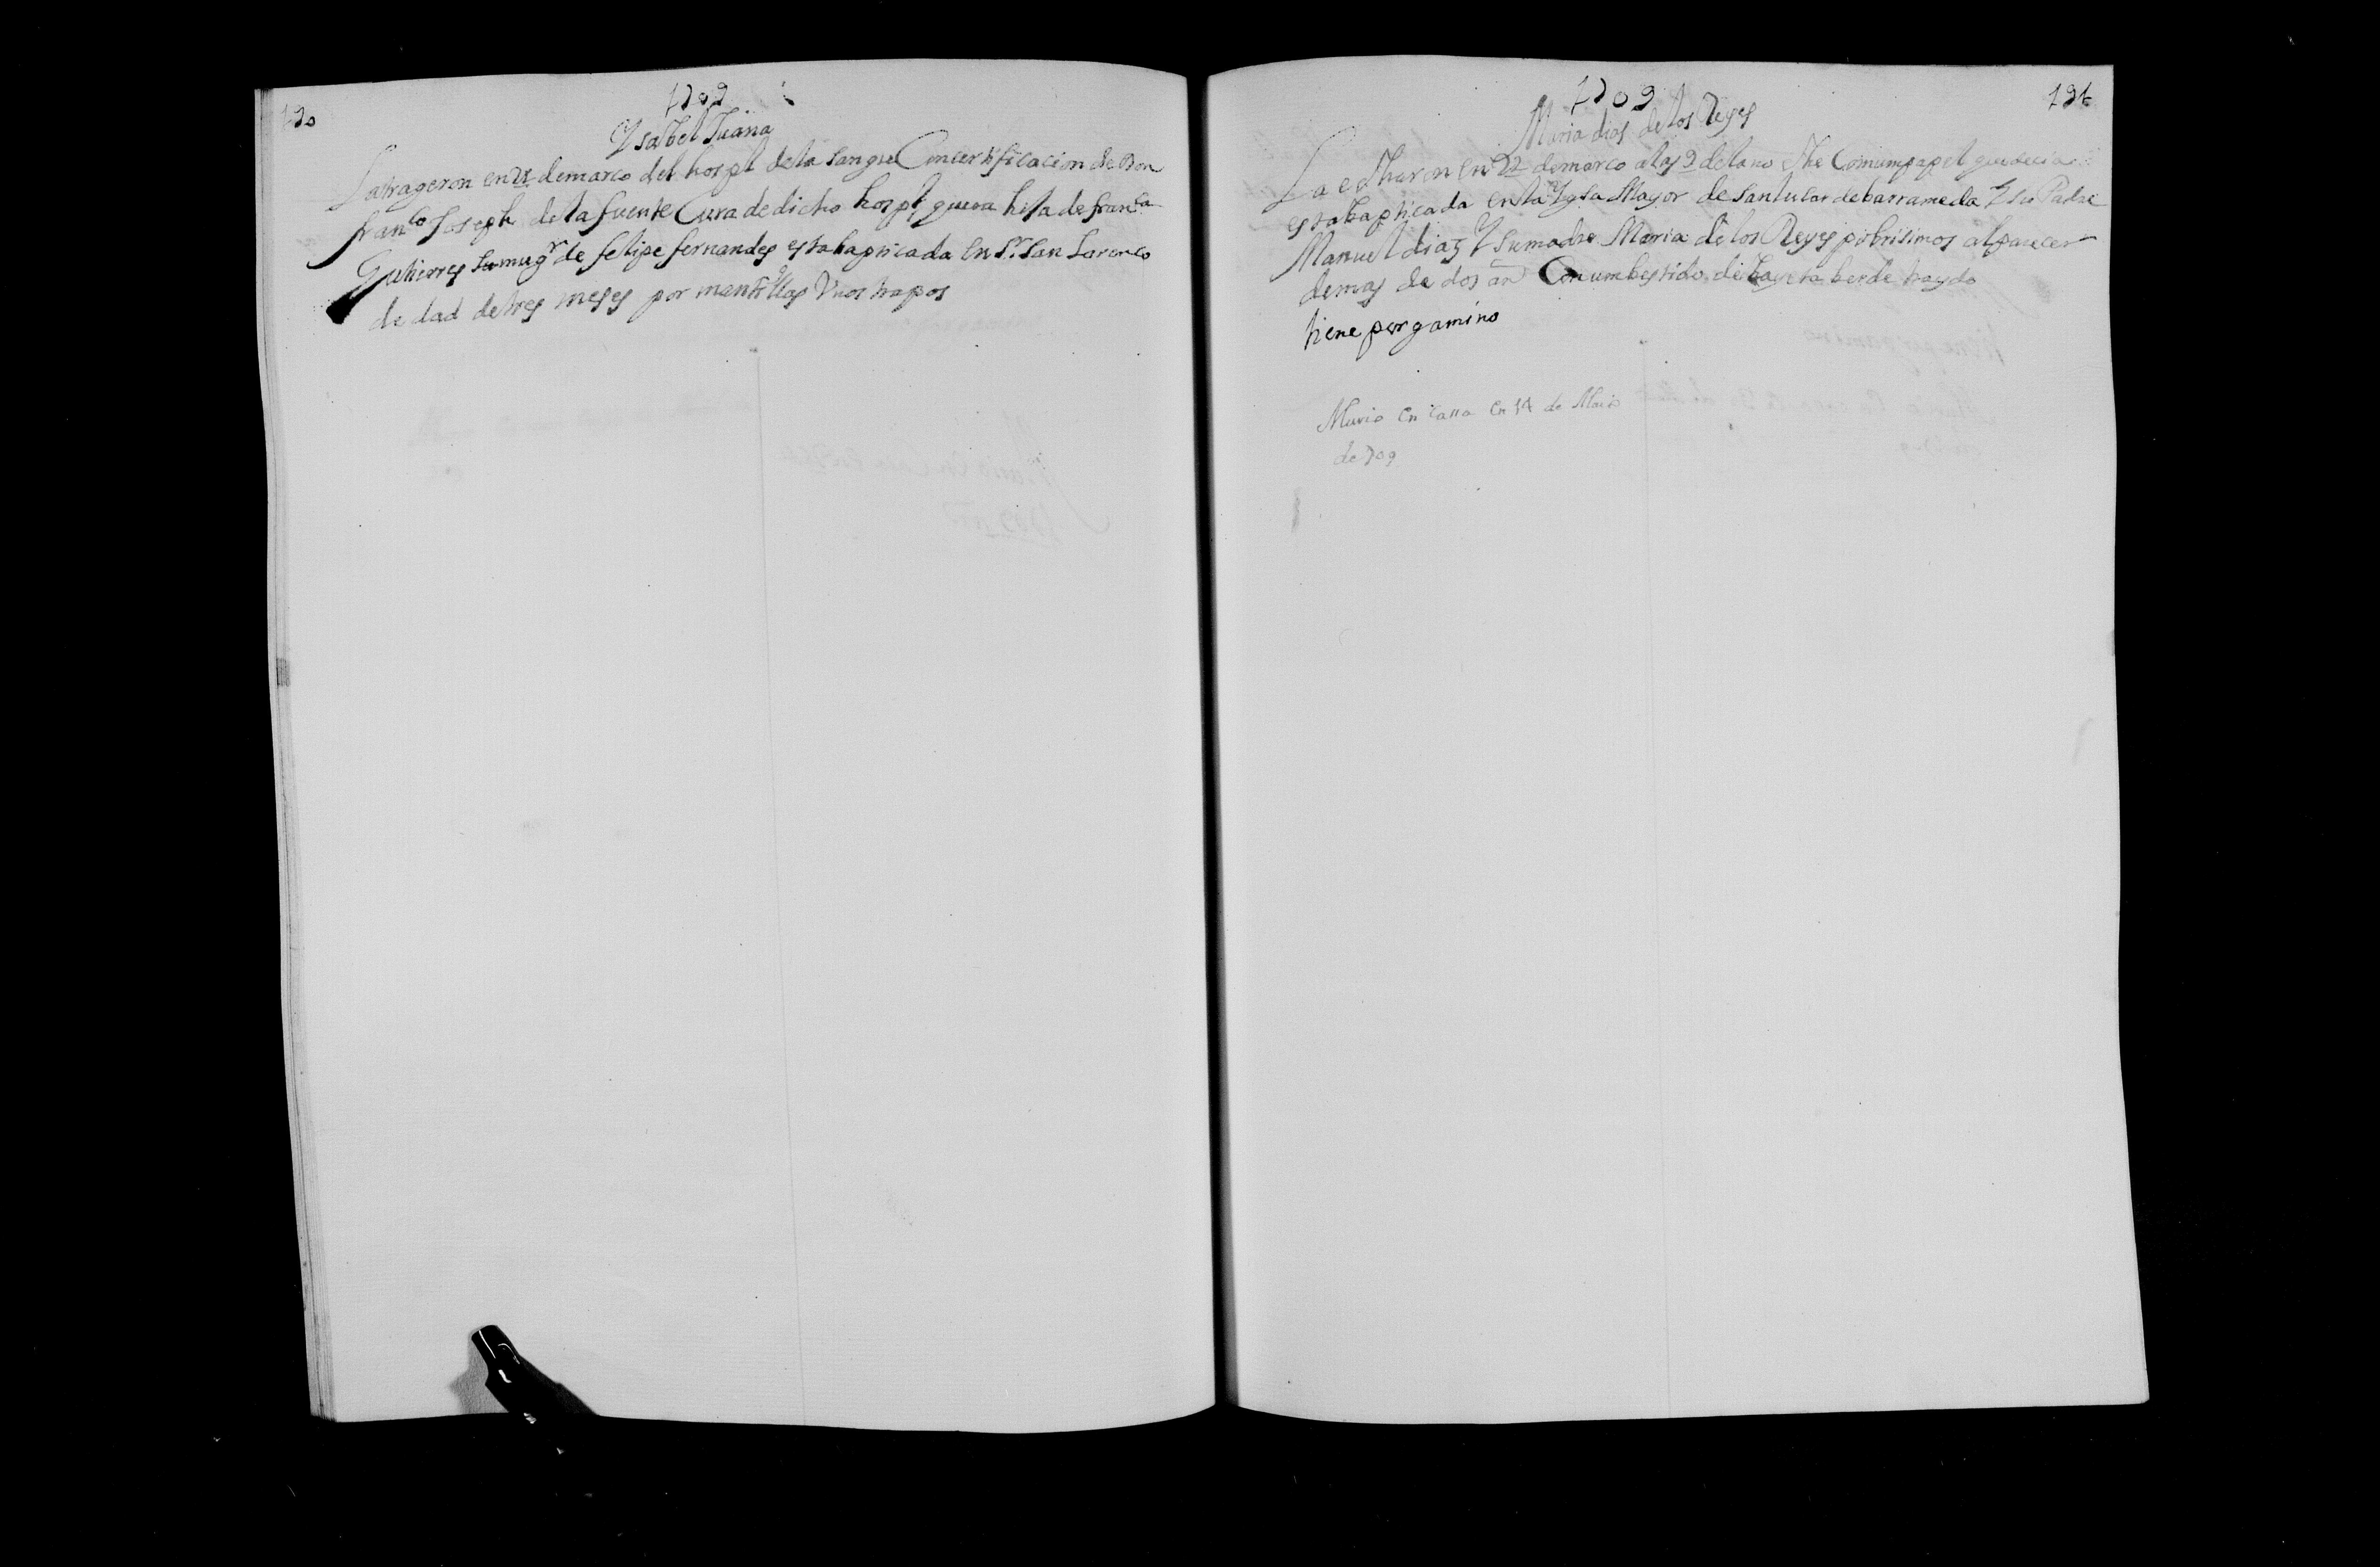 190
1709
Ysabel Juana
La trageron en 21 de marco del hospl de la sangre Con certificacion de Don
franco Joseph de la fuente Cura de dicho hospl, que era hija de franca
Gutierres su mugr de felipe fernandes esta bapticada en Sr. San Lorenco
de dad de tres meses por mantillas Unos trapos
1709
191
Maria dias de los Reyes
La echaron en 22 de marco a las 9 de la no che Con um papel que decia
esta bapticada en la Yglsa Mayor de Sanlucar de barrameda Y su Padre
Manuel diaz Y su madre Maria de los Reyes pobrisimos al parecer
de mas de dos an Con um bestido de bayeta berde traydo
tiene pergamino
Murio en cassa en 17 de Maio
de 709